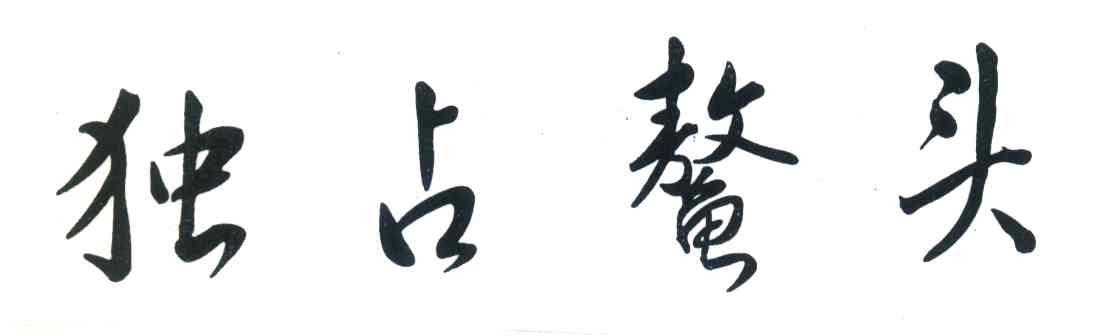 独占鳌头